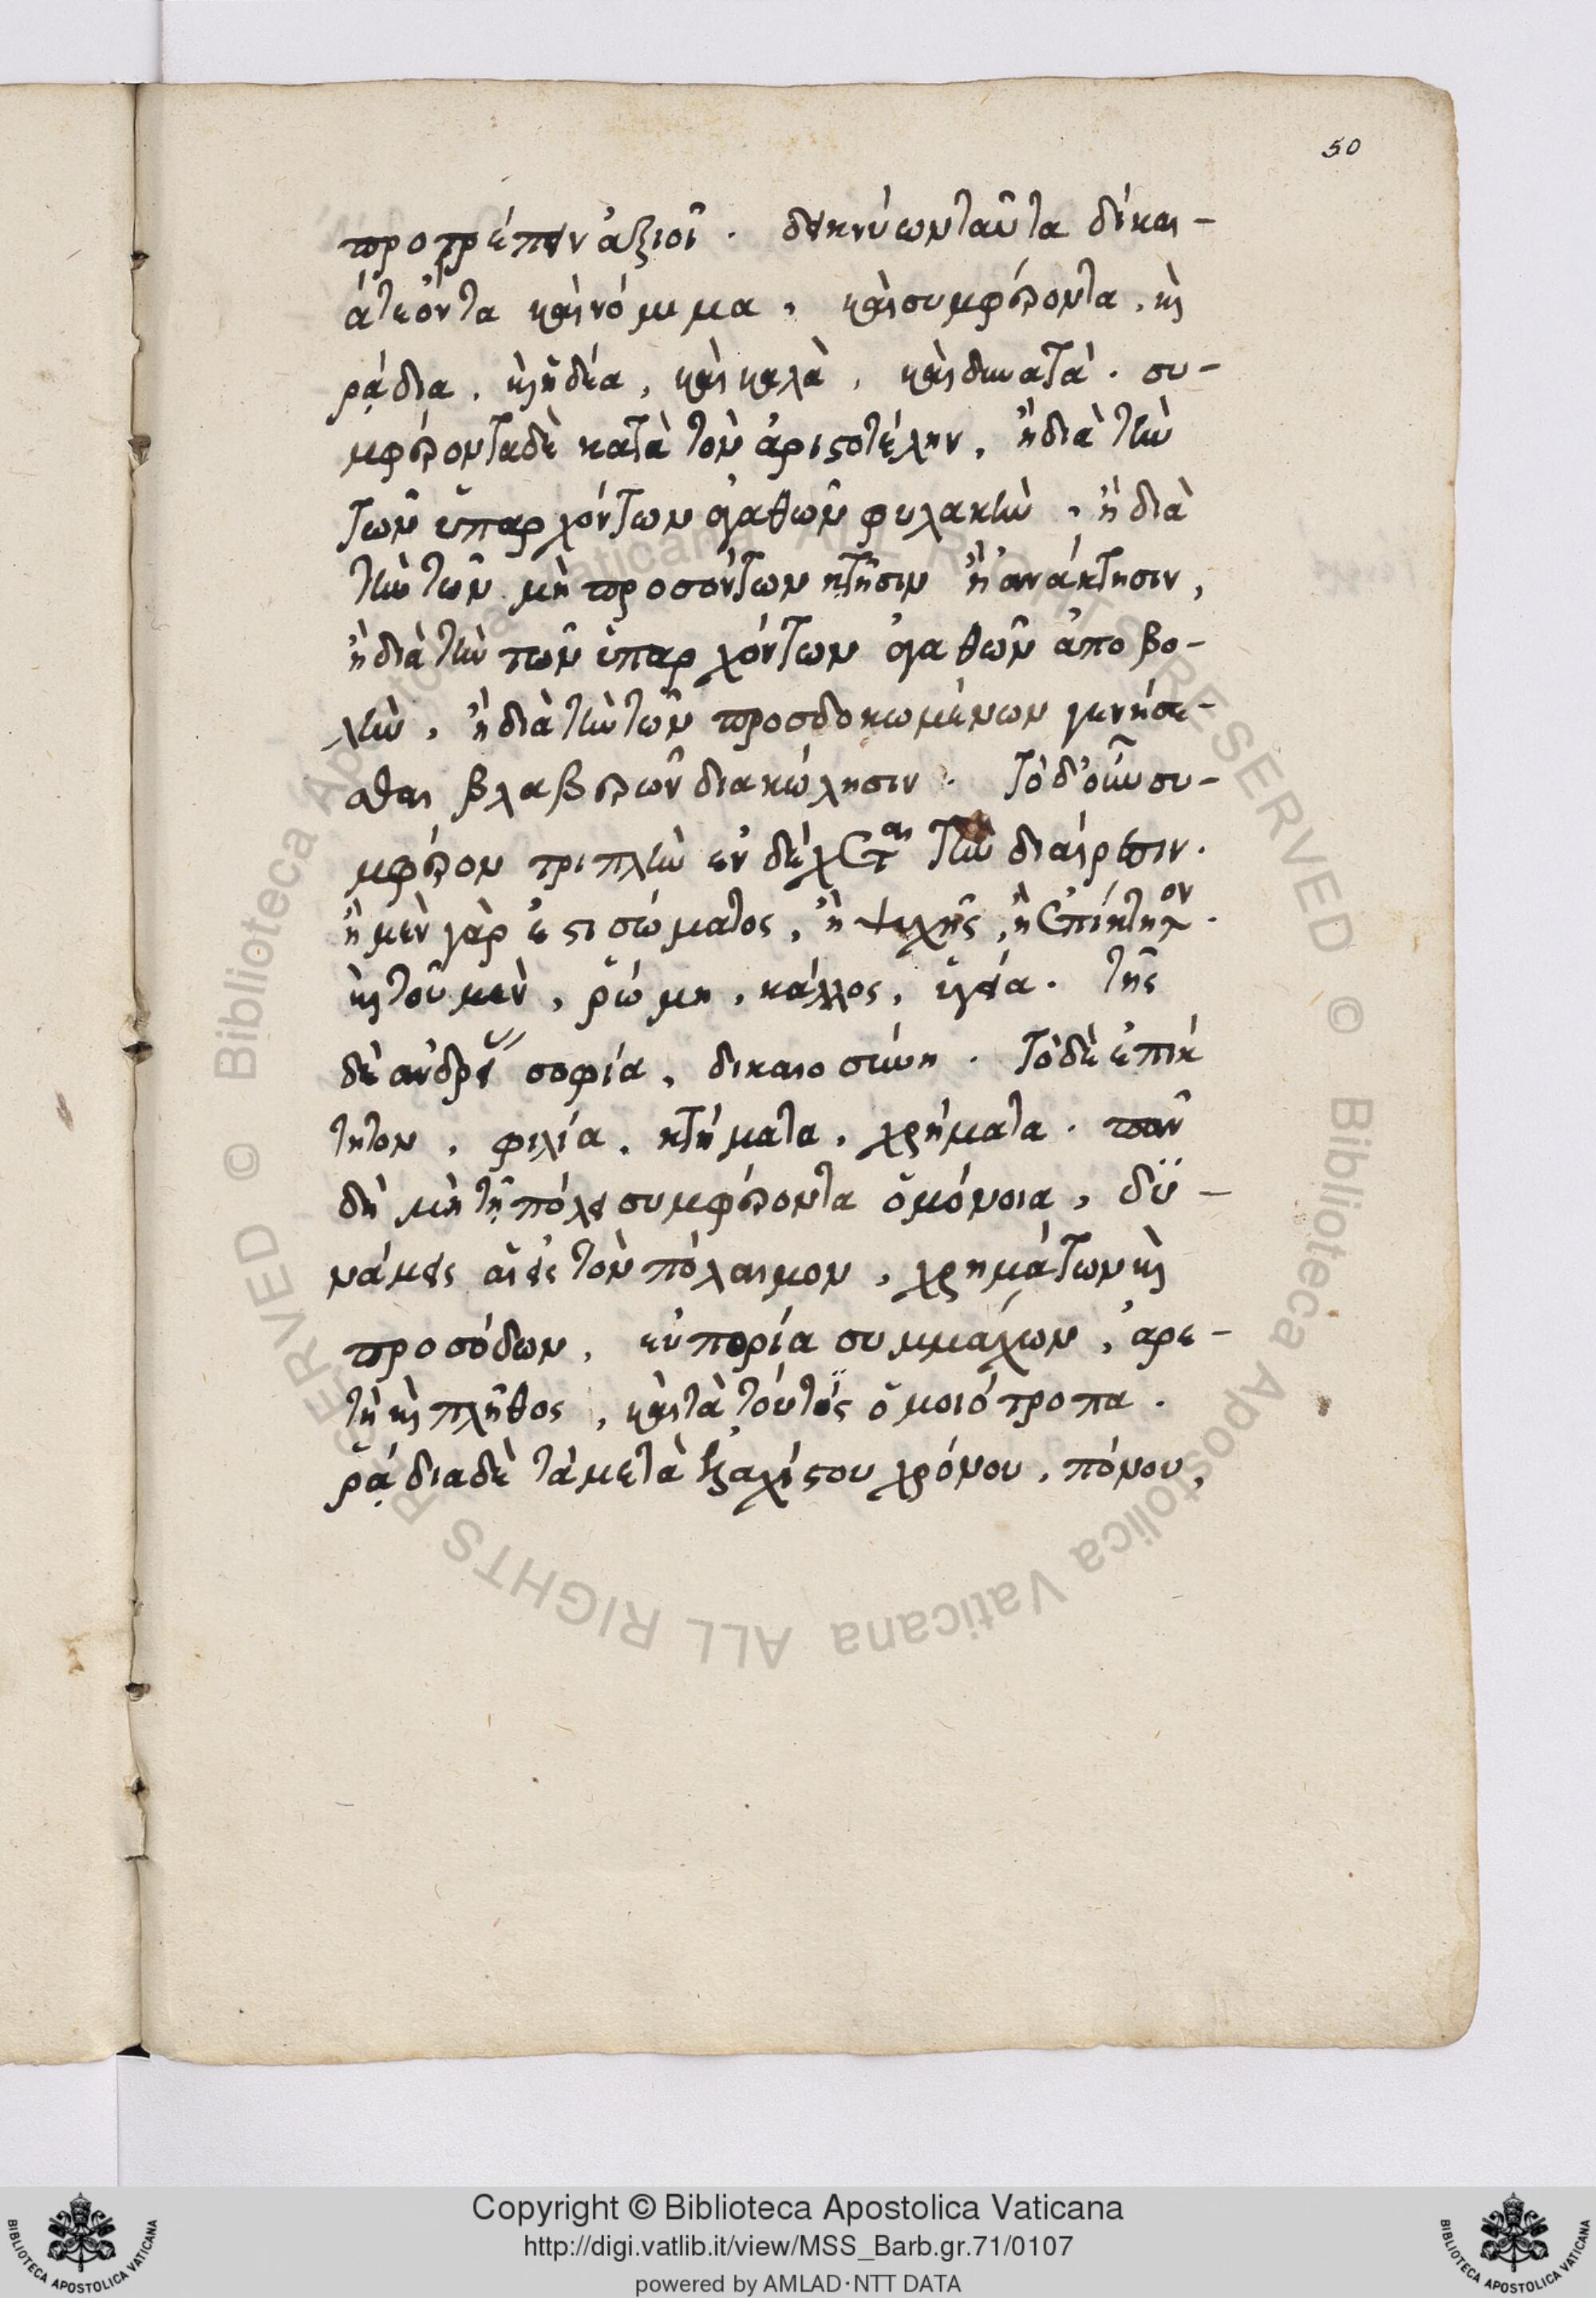 50
προτρέπειν ἀξιοῖ . δεικνύων ταῦτα δίκαι-
ά τε ὄντα καὶ νόμιμα , καὶ συμφέροντα , καὶ
ῥᾴδια , καὶ ἡδέα , καὶ καλὰ , καὶ δυνατά . συ-
μφέροντα δὲ κατὰ τὸν ἀριστοτέλην , ἢ διὰ τὴν
τῶν ὑπαρχόντων ἀγαθῶν φυλακὴν , ἢ διὰ
τὴν τῶν μὴ προσόντων κτῆσιν ἢ ἀνάκτησιν ,
ἢ διὰ τὴν τῶν ὑπαρχόντων ἀγαθῶν ἀποβο-
λὴν , ἢ διὰ τὴν τῶν προσδοκωμένων γενήσε-
σθαι βλαβερῶν διακώλησιν . Τὸ δ' οὖν συ-
μφέρον τριπλὴν ἐνδέχεται τὴν διαίρεσιν .
ἢ μὲν γάρ ἐστι σώματος , ἢ ψυχῆς , ἢ ἐπίκτητον .
καὶ τοῦ μὲν , ῥώμη , κάλλος , ὑγεία . τῆς
δὲ ἀνδρεία σοφία , δικαιοσύνη . Τὸ δὲ ἐπίκ
τητον , φιλία , κτήματα , χρήματα . τῶν
δὴ μὴ τῇ πόλει συμφέροντα ὁμόνοια , δυ-
νάμεις αἱ εἰς τὸν πόλαιμον , χρημάτων καὶ
προσόδων , εὐπορία συμμάχων , ἀρε-
τὴ καὶ πλῆθος , καὶ τὰ τούτοις ὁμοιότροπα .
ῥᾴδια δὲ τὰ μετὰ ἐξαχίστου χρόνου , πόνου ,
Copyright © Biblioteca Apostolica Vaticana
http://digi.vatlib.it/view/MSS_Barb.gr.71/0107
powered by AMLAD·NTT DATA